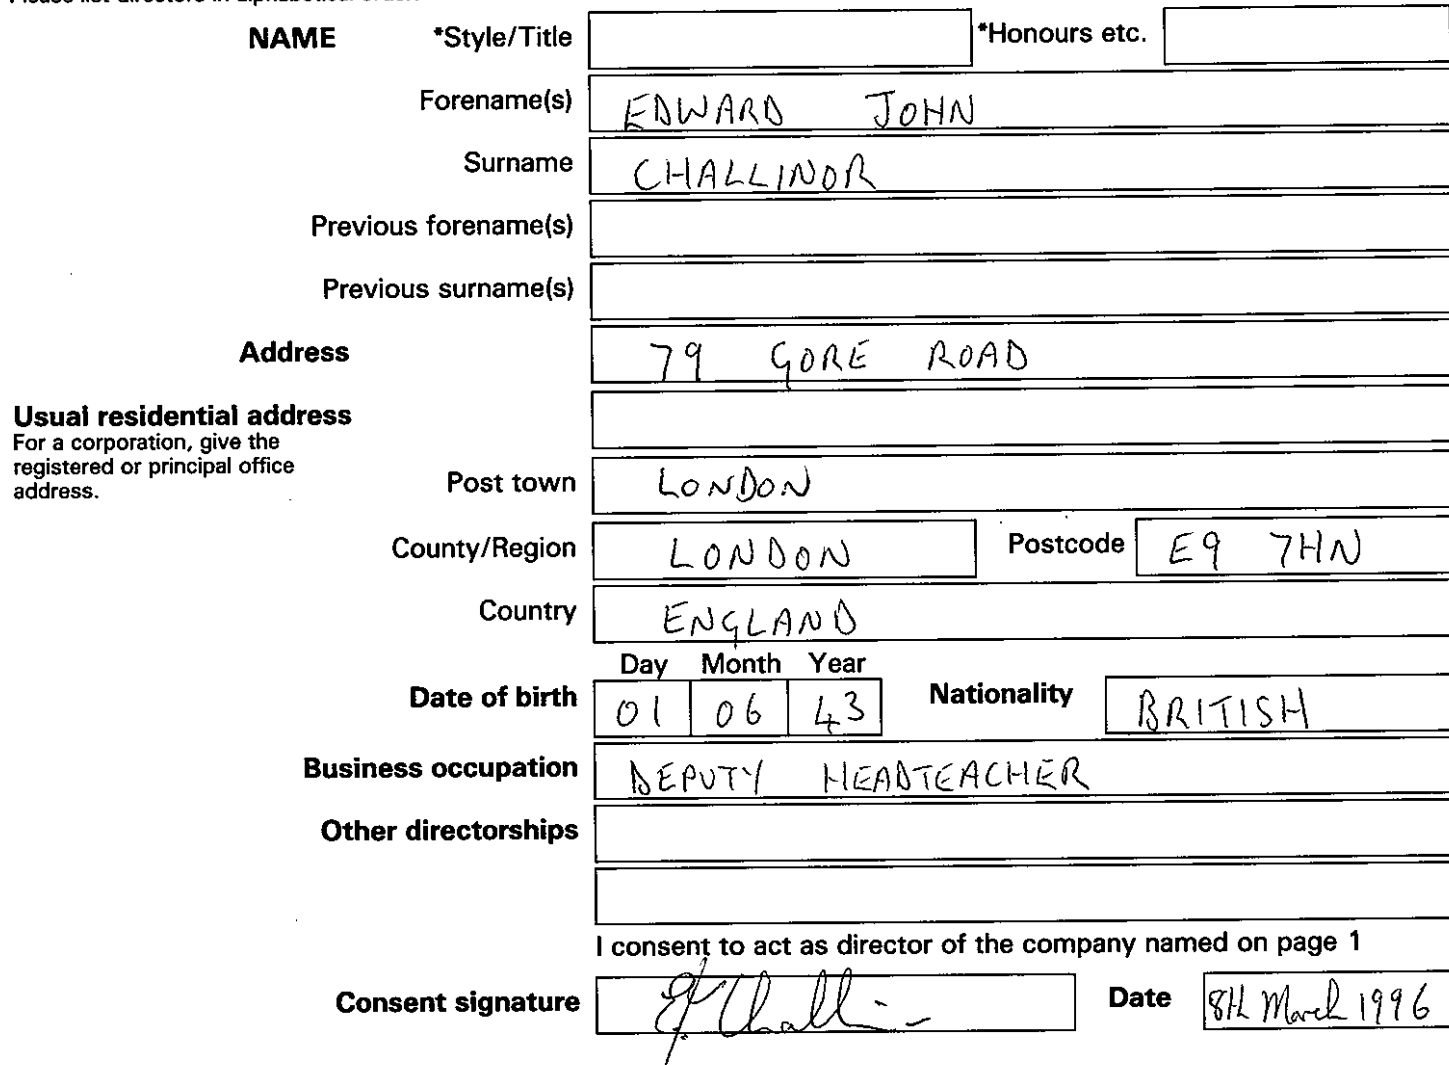 NAME *Style/Title *Honours etc.
Forename(s) EDWARD JOHN
Surname CHALLINOR
Previous forename(s)
Previous surname(s)
Address 79 GORE ROAD
Usual residential address
For a corporation, give the
registered or principal office
address.
Post town LONDON
County/Region LONDON Postcode E9 7HN
Country ENGLAND
Day Month Year
Date of birth 01 06 43 Nationality BRITISH
Business occupation DEPUTY HEADTEACHER
Other directorships
I consent to act as director of the company named on page 1
Consent signature EJ Challi Date 8th March 1996